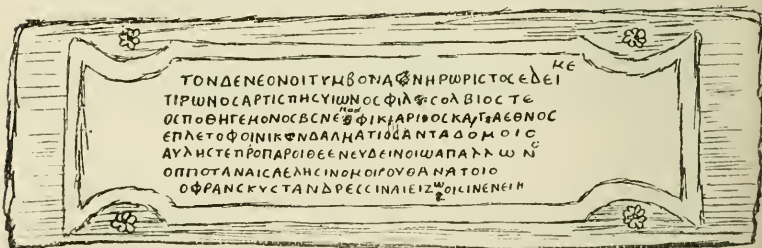 ΚΕ
ΤΟΝΔΕΝΕΟΝΟΙΤΥΜΒΟΝΑΝΗΡΩΡΙCΤΟCΕΔΕΙ
ΤΙΡΩΝΟCΑΡΤΙCΠΗCΥΙΩΝΟCΦΙΛΟCΟΛΒΙΟCΤΕ
ΟCΠΟΘΗΓΕΜΟΝΟCΒCΝΕΦΙΚΙΑΡΙΟCΚΑΙΓΑΕΘΝΟC
ΕΠΛΕΤΟΦΟΙΝΙΚΩΝΔΑΛΜΑΤΙΟCΑΝΤΑΔΟΜΟΙC
ΑΥΛΗCΤΕΠΡΟΠΑΡΟΙΘΕΕΝΕΥΔΕΙΝΟΙΩΑΠΑΛΛΩΝC
ΟΠΠΟΤΑΝΑΙCΑΕΛΗCΙΝΟΜΟΙΡΟΥΘΑΝΑΤΟΙΟ
ΟΦΡΑΝCΚΥCΤΑΝΔΡΕCCΙΝΑΙΕΙΖΩΟΙCΙΝΕΝΕΙΗ